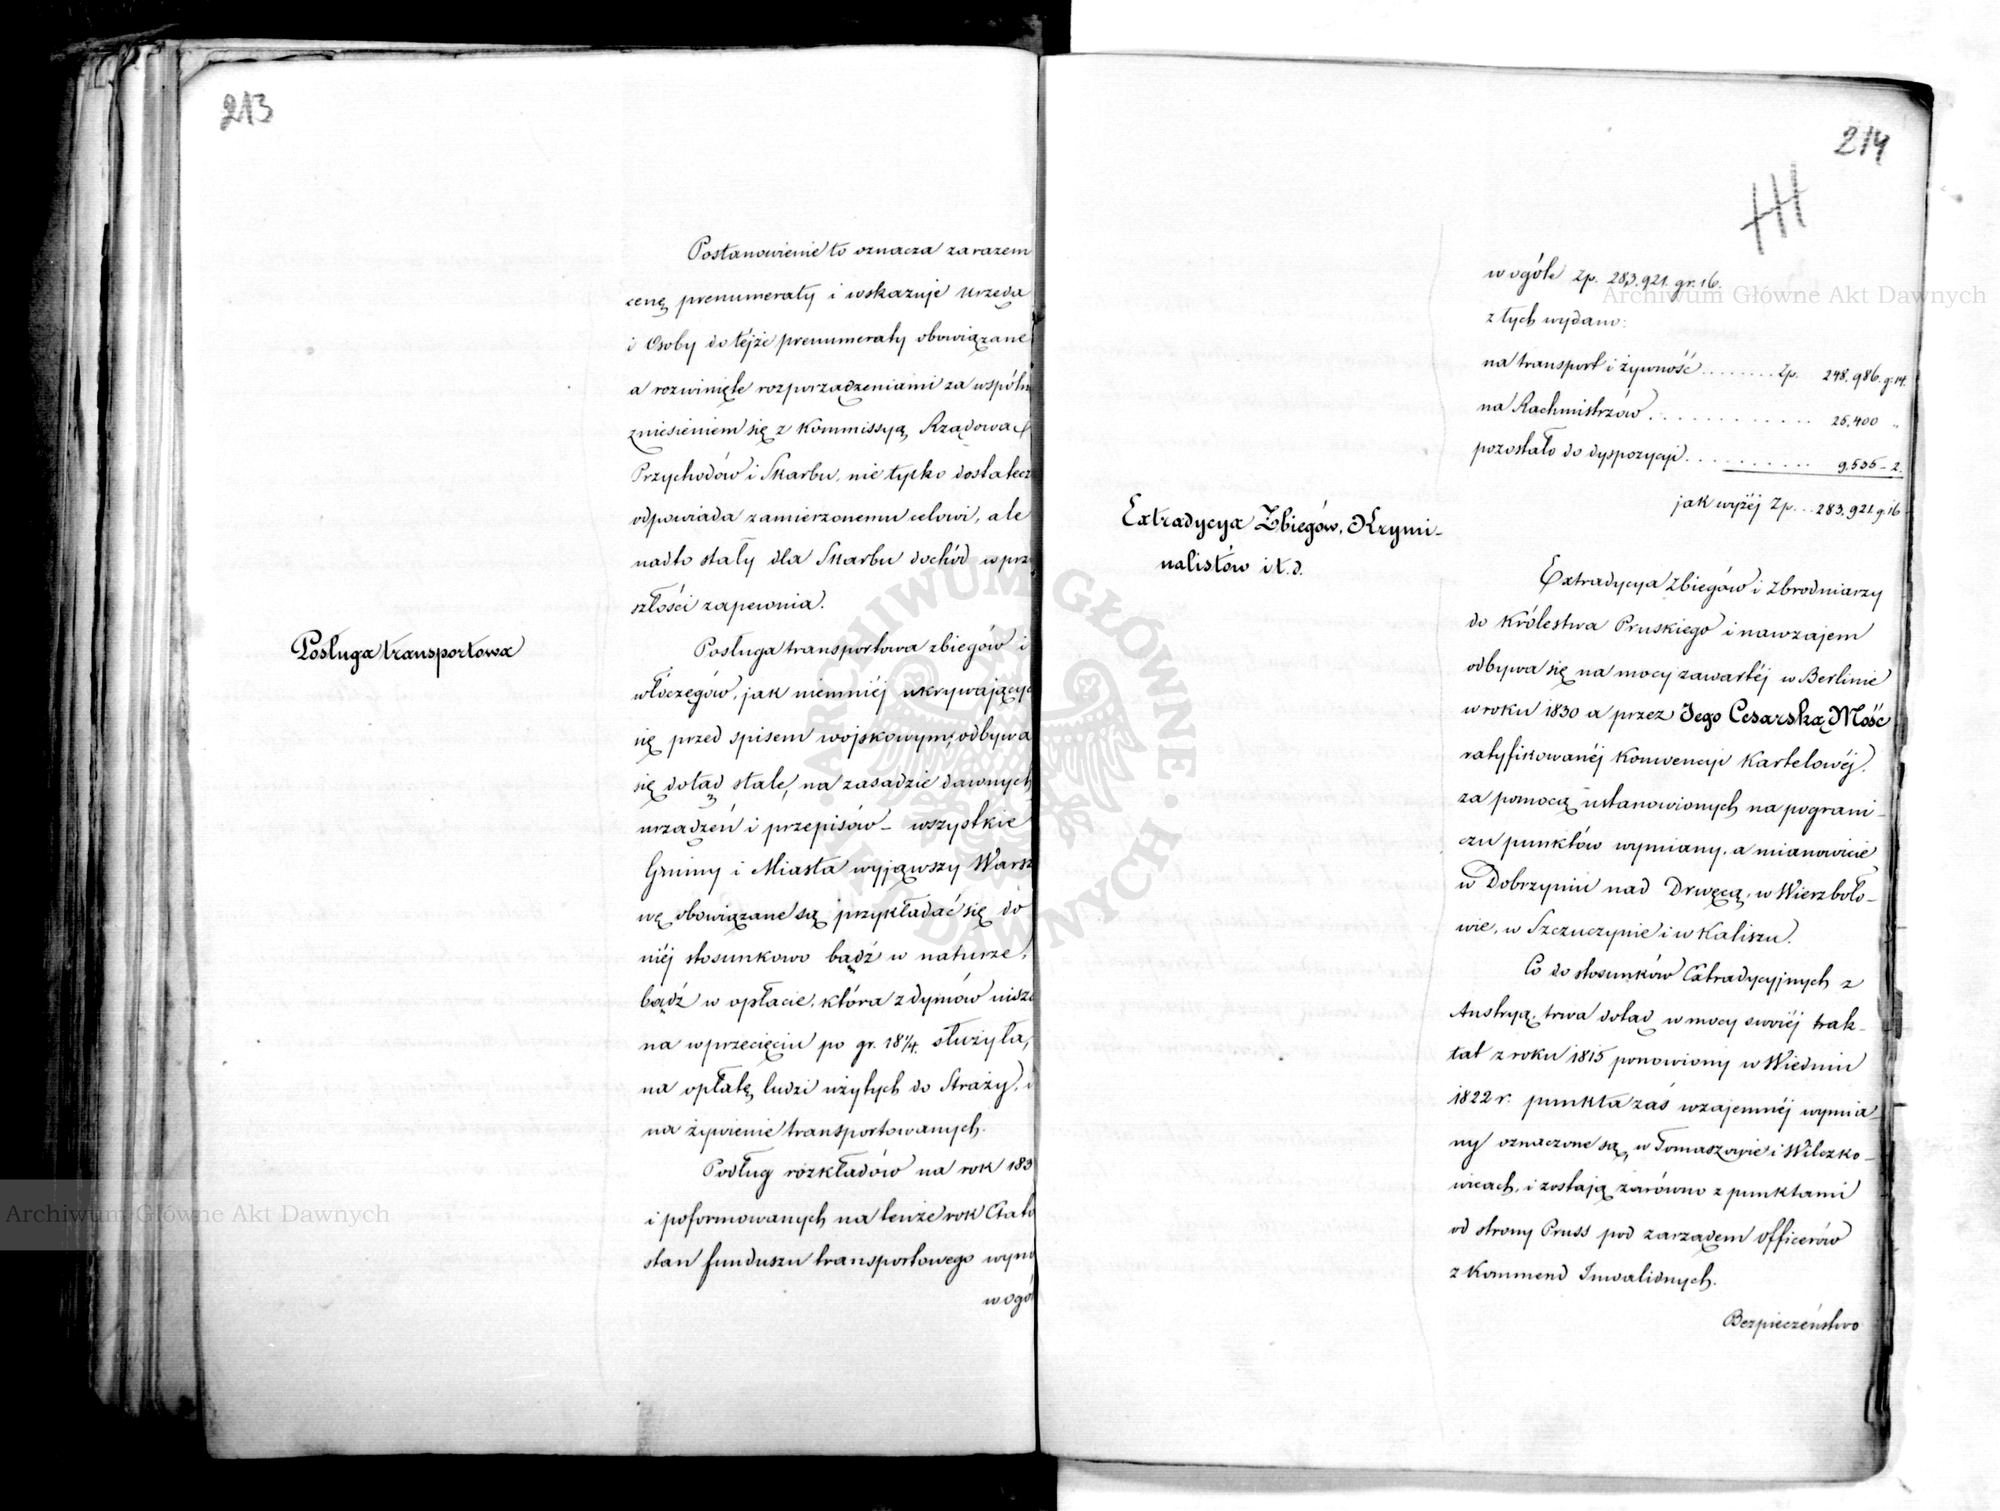 213
Postanowienie to oznacza zarazem
cenę prenumeraty i wskazuje urzęda
i Osoby do tejże prenumeraty obowiązane
a rozwinięte rozporządzeniami za wspóln
zniesieniem się z Kommissyą Rządową
Przychodów i Skarbu, nie tylko dostatecz
odpowiada zamierzonemu celowi, ale
nadto stały dla Skarbu dochód w prz
szłości zapewnia.
Posługa transportowa
Posługa transportowa zbiegów i
włóczęgów, jak niemniéj ukrywającyc
się przed spisem wojskowym, odbywa
się dotąd stale, na zasadzie dawnych
urządzeń i przepisów – wszystkie
Gminy i Miasta wyjąwszy Warsz
wę obowiązane są przykładać się do
niéj stosunkowo bądź w naturze,
bądź w opłacie, która z dymów uisz
na w przecięciu po gr. 18 1/4. służyła,
na opłatę ludzi użytych do Straży, i
na żywienie transportowanych.
Podług rozkładów na rok 183
i poformowanych na tenże rok Etató
stan funduszu transportowego wyno
w ogó
214
w ogóle Zp. 283.921. gr. 16.
z tych wydano:
na transport i żywność ........ Zp. 248.986. g. 14.
na Rachmistrzów .............. 25,400 „
pozostało do dyspozycyi .......... 9.535 – 2.
jak wyżéj Zp. .. 283.921 g. 16
Extradycya Zbiegów, Krymi-
nalistów i t. d.
Extradycya Zbiegów i Zbrodniarzy
do Królestwa Pruskiego i nawzajem
odbywa się na mocy zawartéj w Berlinie
w roku 1830 a przez Jego Cesarską Mość
ratyfikowanéj Konwencyi Kartelowéj,
za pomocą ustanowionych na pograni-
czu punktów wymiany, a mianowicie
w Dobrzyniu nad Drwęcą, w Wierzboło-
wie, w Szczuczynie i w Kaliszu.
Co do stosunków Extradycyjnych z
Austryą, trwa dotąd w mocy swoiéj trak-
tat z roku 1815 ponowiony w Wiedniu
1822 r. punkta zaś wzajemnéj wymia
ny oznaczone są, w Tomaszowie i Wilczko-
wicach, i zostają zarówno z punktami
od strony Pruss pod zarządem officerów
z Kommend Inwalidnych.
Bezpieczeństwo
Archiwum Główne Akt Dawnych
Archiwum Główne Akt Dawnych
ARCHIWUM GŁÓWNE AKT DAWNYCH